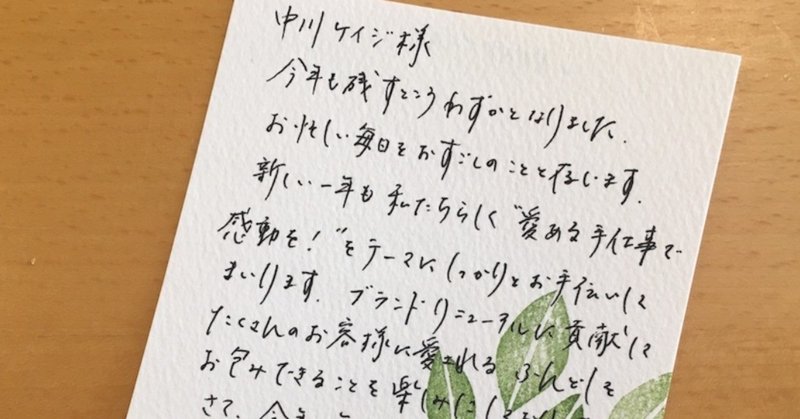 中川ケイジ様
今年も残すところわずかとなりました.
お忙しい毎日をおすごしのことと存じます.
新しい一年も私たちらしく"愛ある手仕事で
感動を!"をテーマにしっかりとお手伝いして
まいります. ブランドリニューアルに貢献して
たくさんのお客様に愛されるふんどしを
お包みできることを楽しみに
さて、今年